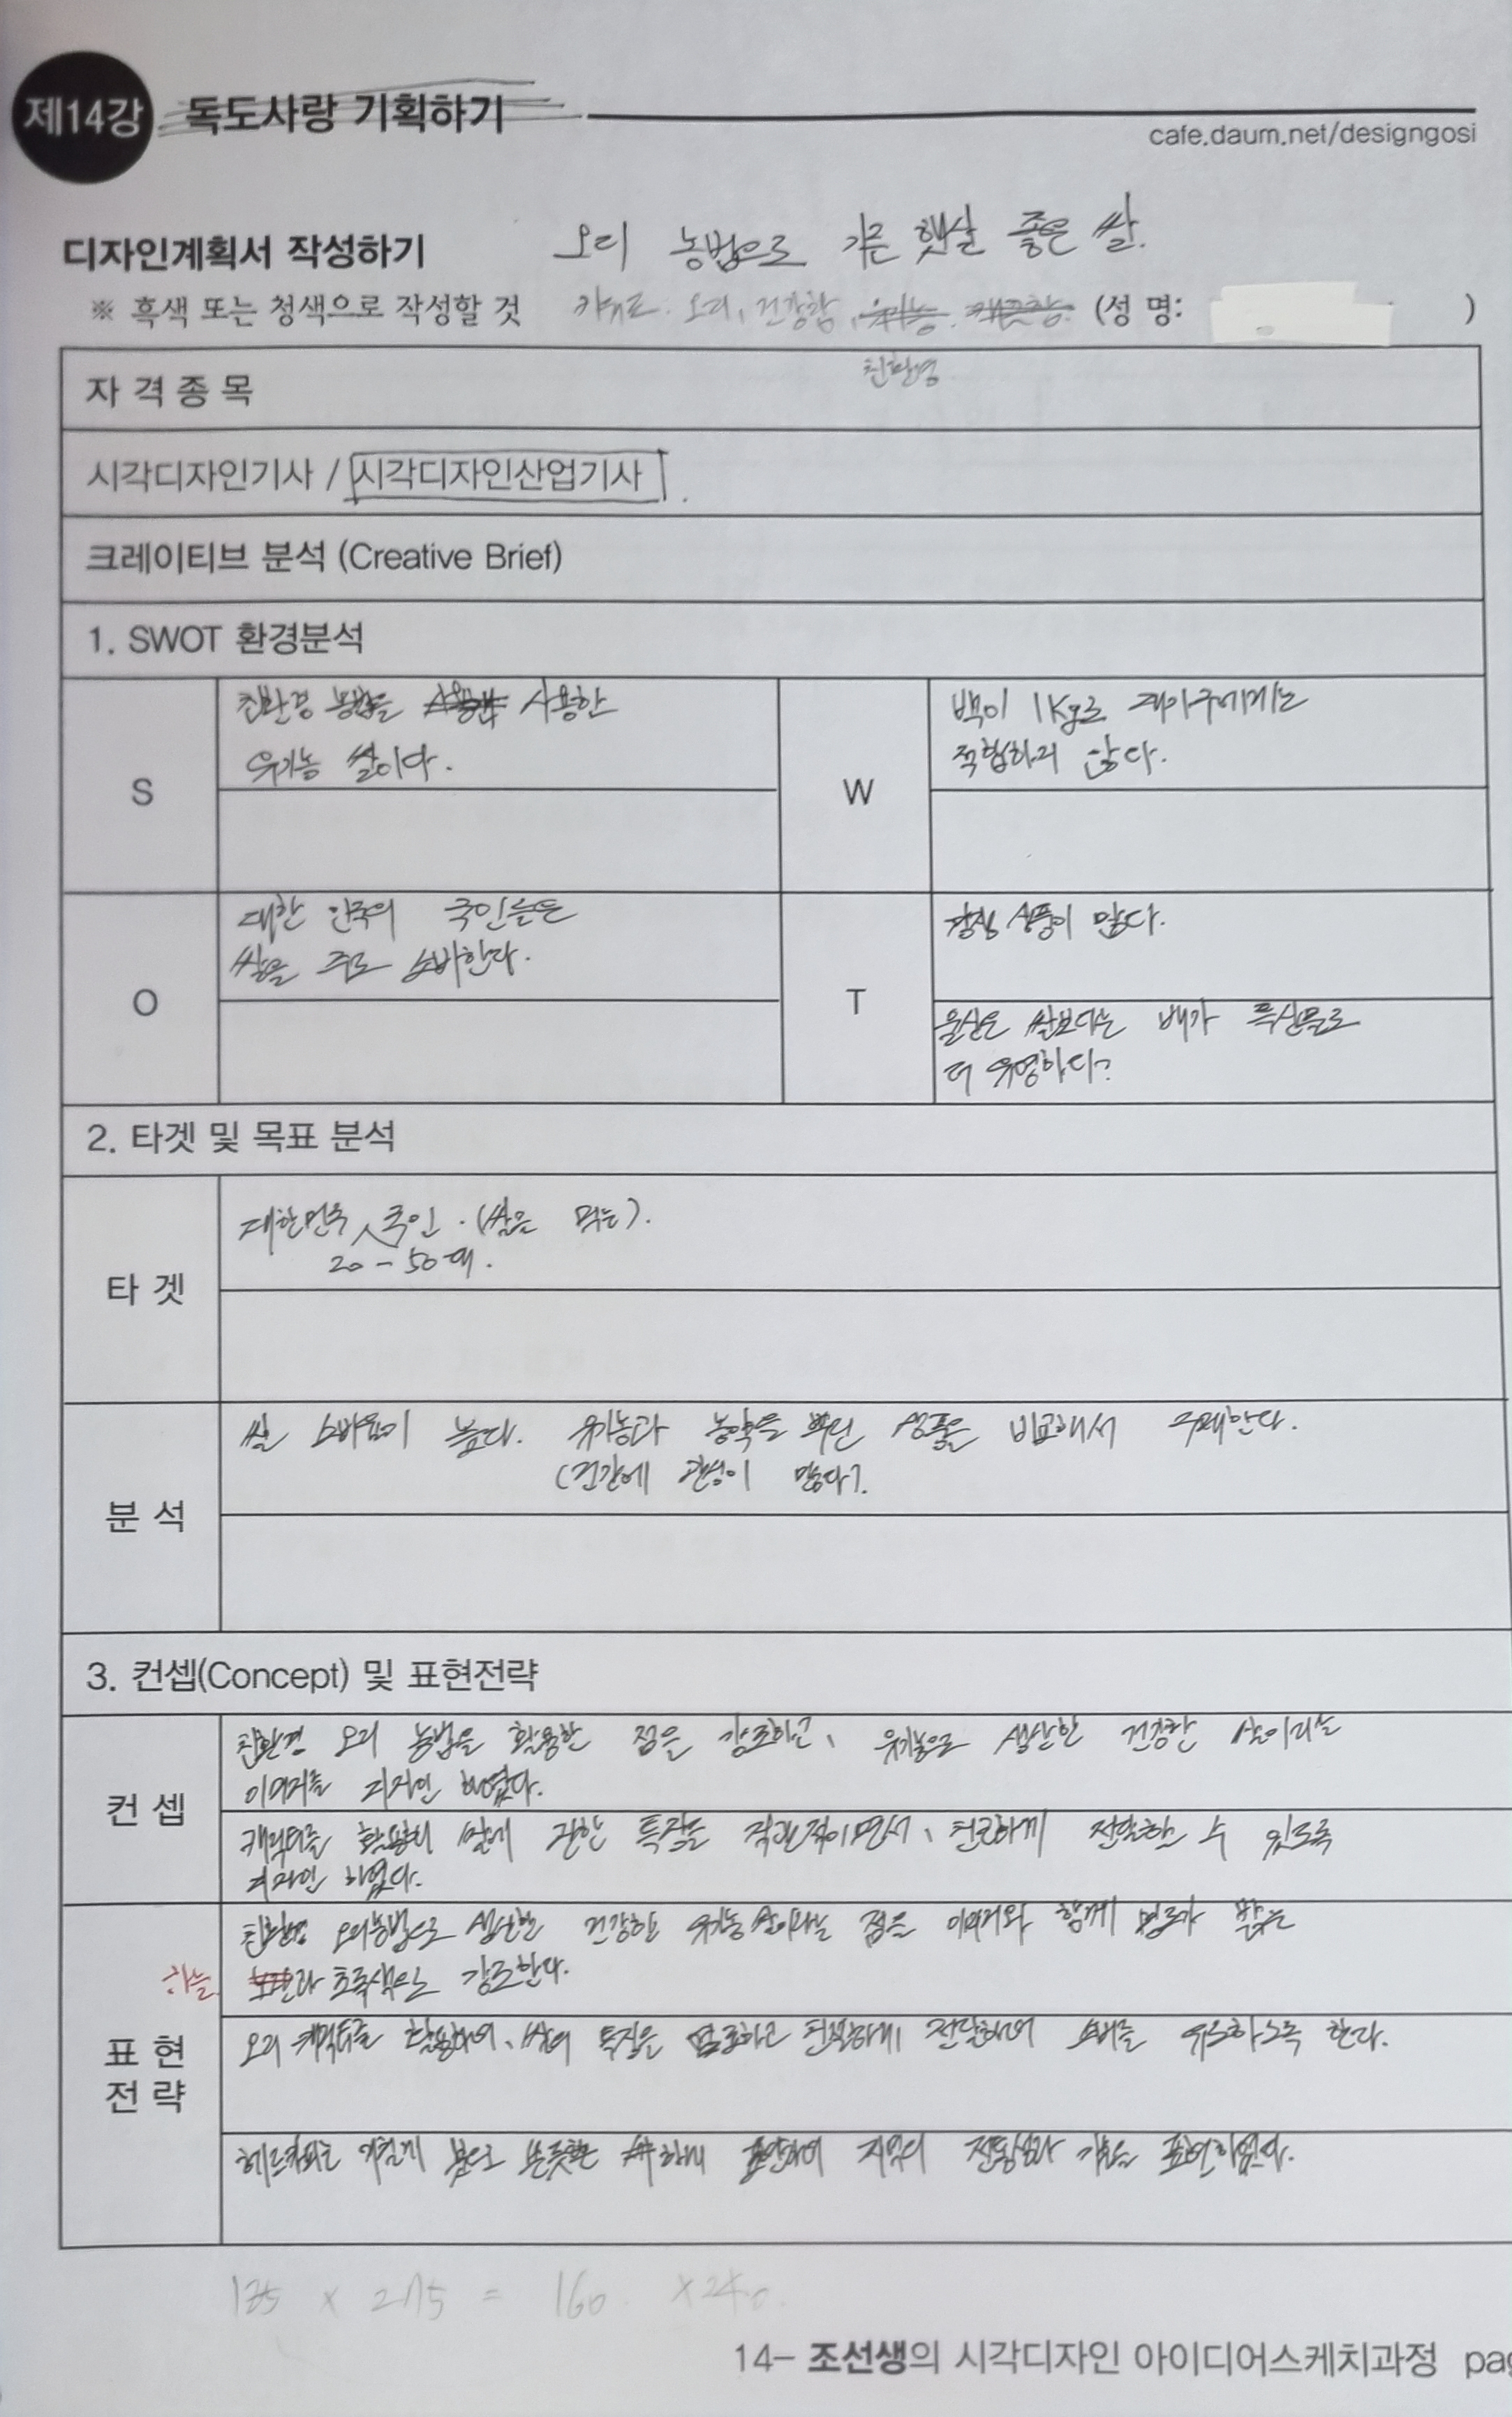 제14강 독도사랑 기획하기
cafe.daum.net/designgosi
디자인계획서 작성하기 오리 농법으로 키운 햇살 좋은 쌀.
※ 흑색 또는 청색으로 작성할 것 키워드. 오리, 건강함, 유기농. 깨끗함. (성 명: )
친환경
자 격 종 목
시각디자인기사 / 시각디자인산업기사
크레이티브 분석 (Creative Brief)
1. SWOT 환경분석
S
친환경 농법을 사용한
유기농 쌀이다.
W
백이 1Kg로 대가구에게는
적합하지 않다.
O
대한 민국의 국민들은
쌀을 주로 소비한다.
T
경쟁 상품이 많다.
울산은 쌀보다는 배가 특산물로
더 유명하다?
2. 타겟 및 목표 분석
타 겟
대한민국 국민. (쌀을 먹는).
20 - 50대.
분 석
쌀 소비율이 높다. 유기농과 농약을 상품을 비교해서 구매한다.
(건강에 관심이 많다).
3. 컨셉(Concept) 및 표현전략
컨 셉
친환경 오리 농법을 활용한 점을 강조하고, 유기농으로 생산한 건강한 쌀이라는
이미지를 디자인 하였다.
캐릭터를 활용해 쌀에 관한 특징을 직관적이면서, 친근하게 전달할 수 있도록
디자인 하였다.
표 현
전 략
친환경 오리농법으로 생산한 건강한 유기농 쌀이라는 점을 이미지와 함께 명도가 밝은
하늘 과 초록색으로 강조한다.
오리 캐릭터를 활용하여, 쌀의 특징을 강조하고 친근하게 전달하여 소비를 유도하도록 한다.
헤드카피는 거칠게 붓으로 쓴듯한 표현하여 지역의 전통성과 표현하였다.
135 x 275 = 160. x240.
14- 조선생의 시각디자인 아이디어스케치과정 pag